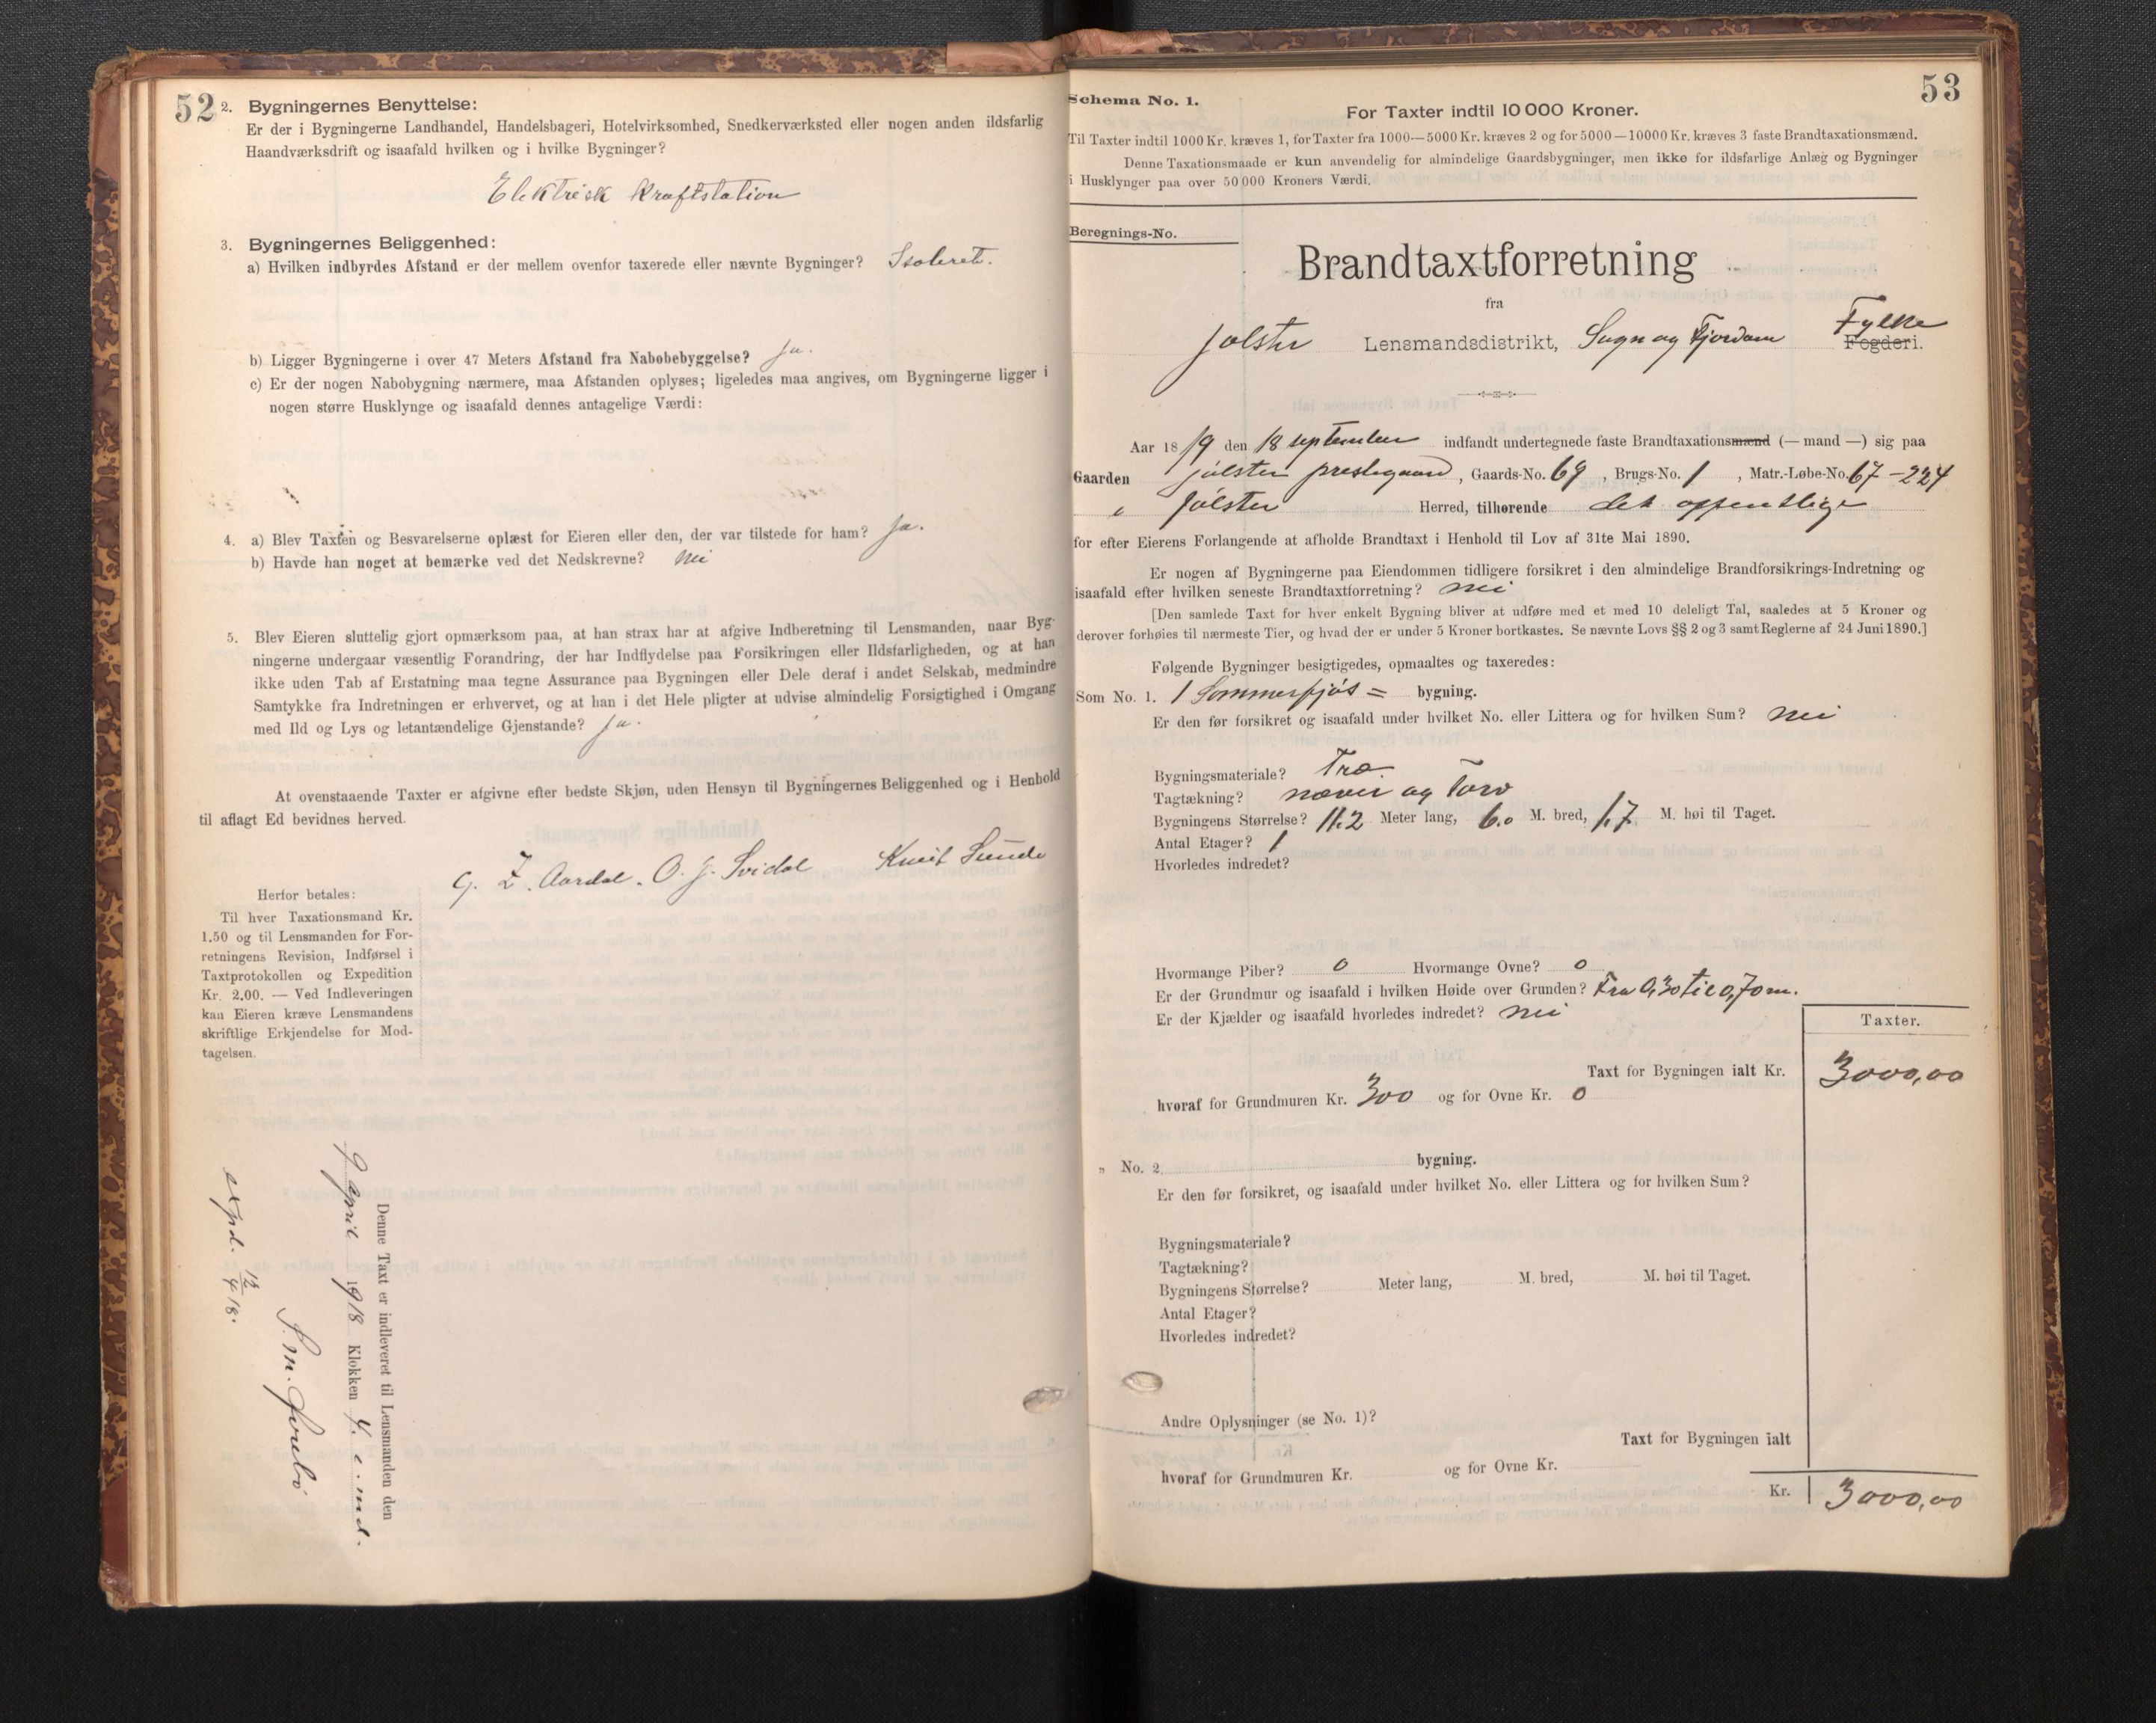 52
2. Bygningernes Benyttelse:
Er der i Bygningerne Landhandel, Handelsbageri, Hotelvirksomhed, Snedkerværksted eller nogen anden ildsfarlig
Haandværksdrift og isaafald hvilken og i hvilke Bygninger?
Elektrisk Kraftstation
3. Bygningernes Beliggenhed:
a) Hvilken indbyrdes Afstand er der mellem ovenfor taxerede eller nævnte Bygninger? Isoleret.
b) Ligger Bygningerne i over 47 Meters Afstand fra Nabobebyggelse? Ja.
c) Er der nogen Nabobygning nærmere, maa Afstanden oplyses; ligeledes maa angives, om Bygningerne ligger i
nogen større Husklynge og isaafald dennes antagelige Værdi:
4. a) Blev Taxten og Besvarelserne oplæst for Eieren eller den, der var tilstede for ham? Ja.
b) Havde han noget at bemærke ved det Nedskrevne? nei
5. Blev Eieren sluttelig gjort opmærksom paa, at han strax har at afgive Indberetning til Lensmanden, naar Byg-
ningerne undergaar væsentlig Forandring, der har Indflydelse paa Forsikringen eller Ildsfarligheden, og at han
ikke uden Tab af Erstatning maa tegne Assurance paa Bygningen eller Dele deraf i andet Selskab, medmindre
Samtykke fra Indretningen er erhvervet, og at han i det Hele pligter at udvise almindelig Forsigtighed i Omgang
med Ild og Lys og letantændelige Gjenstande? Ja.
At ovenstaaende Taxter er afgivne efter bedste Skjøn, uden Hensyn til Bygningernes Beliggenhed og i Henhold
til aflagt Ed bevidnes herved.
G. Z. Aardal. O. J. Svidal Knut Sunde
Herfor betales:
Til hver Taxationsmand Kr.
1.50 og til Lensmanden for For-
retningens Revision, Indførsel i
Taxtprotokollen og Expedition
Kr. 2.00. — Ved Indleveringen
kan Eieren kræve Lensmandens
skriftlige Erkjendelse for Mod-
tagelsen.
Denne Taxt er indleveret til Lensmanden den
9 april 1918 Klokken 4 e. md.
expd. 12/4 18.
53
Schema No. 1.
For Taxter indtil 10 000 Kroner.
Til Taxter indtil 1000 Kr. kræves 1, for Taxter fra 1000—5000 Kr. kræves 2 og for 5000—10000 Kr. kræves 3 faste Brandtaxationsmænd.
Denne Taxationsmaade er kun anvendelig for almindelige Gaardsbygninger, men ikke for ildsfarlige Anlæg og Bygninger
i Husklynger paa over 50 000 Kroners Værdi.
Beregnings-No.
Brandtaxtforretning
fra
Jølster Lensmandsdistrikt, Sogn og Fjordane Fylke Fogderi.
Aar 18 19 den 18 september indfandt undertegnede faste Brandtaxationsmænd (— mand —) sig paa
Gaarden Jølster prestegaard, Gaards-No. 69, Brugs-No. 1, Matr.-Løbe-No. 67-224
i Jølster Herred, tilhørende det offentlige
for efter Eierens Forlangende at afholde Brandtaxt i Henhold til Lov af 31te Mai 1890.
Er nogen af Bygningerne paa Eiendommen tidligere forsikret i den almindelige Brandforsikrings-Indretning og
isaafald efter hvilken seneste Brandtaxtforretning? nei
[Den samlede Taxt for hver enkelt Bygning bliver at udføre med et med 10 deleligt Tal, saaledes at 5 Kroner og
derover forhøies til nærmeste Tier, og hvad der er under 5 Kroner bortkastes. Se nævnte Lovs §§ 2 og 3 samt Reglerne af 24 Juni 1890.]
Følgende Bygninger besigtigedes, opmaaltes og taxeredes:
Som No. 1. 1 Sommerfjøs = bygning.
Er den før forsikret og isaafald under hvilket No. eller Littera og for hvilken Sum? nei
Bygningsmateriale? Træ.
Tagtækning? næver og Torv
Bygningens Størrelse? 11.2 Meter lang, 6.0 M. bred, 1.7 M. høi til Taget.
Antal Etager? 1
Hvorledes indredet?
Hvormange Piber? 0 Hvormange Ovne? 0
Er der Grundmur og isaafald i hvilken Høide over Grunden? Fra 0,30 til 0,70 m.
Er der Kjælder og isaafald hvorledes indredet? nei
Taxter.
Taxt for Bygningen ialt Kr. 3000,00
hvoraf for Grundmuren Kr. 300 og for Ovne Kr. 0
„ No. 2 bygning.
Er den før forsikret, og isaafald under hvilket No. eller Littera og for hvilken Sum?
Bygningsmateriale?
Tagtækning?
Bygningens Størrelse? Meter lang, M. bred, M. høi til Taget.
Antal Etager?
Hvorledes indredet?
Andre Oplysninger (se No. 1)?
Taxt for Bygningen ialt
hvoraf for Grundmuren Kr. og for Ovne Kr.
Kr. 3000,00